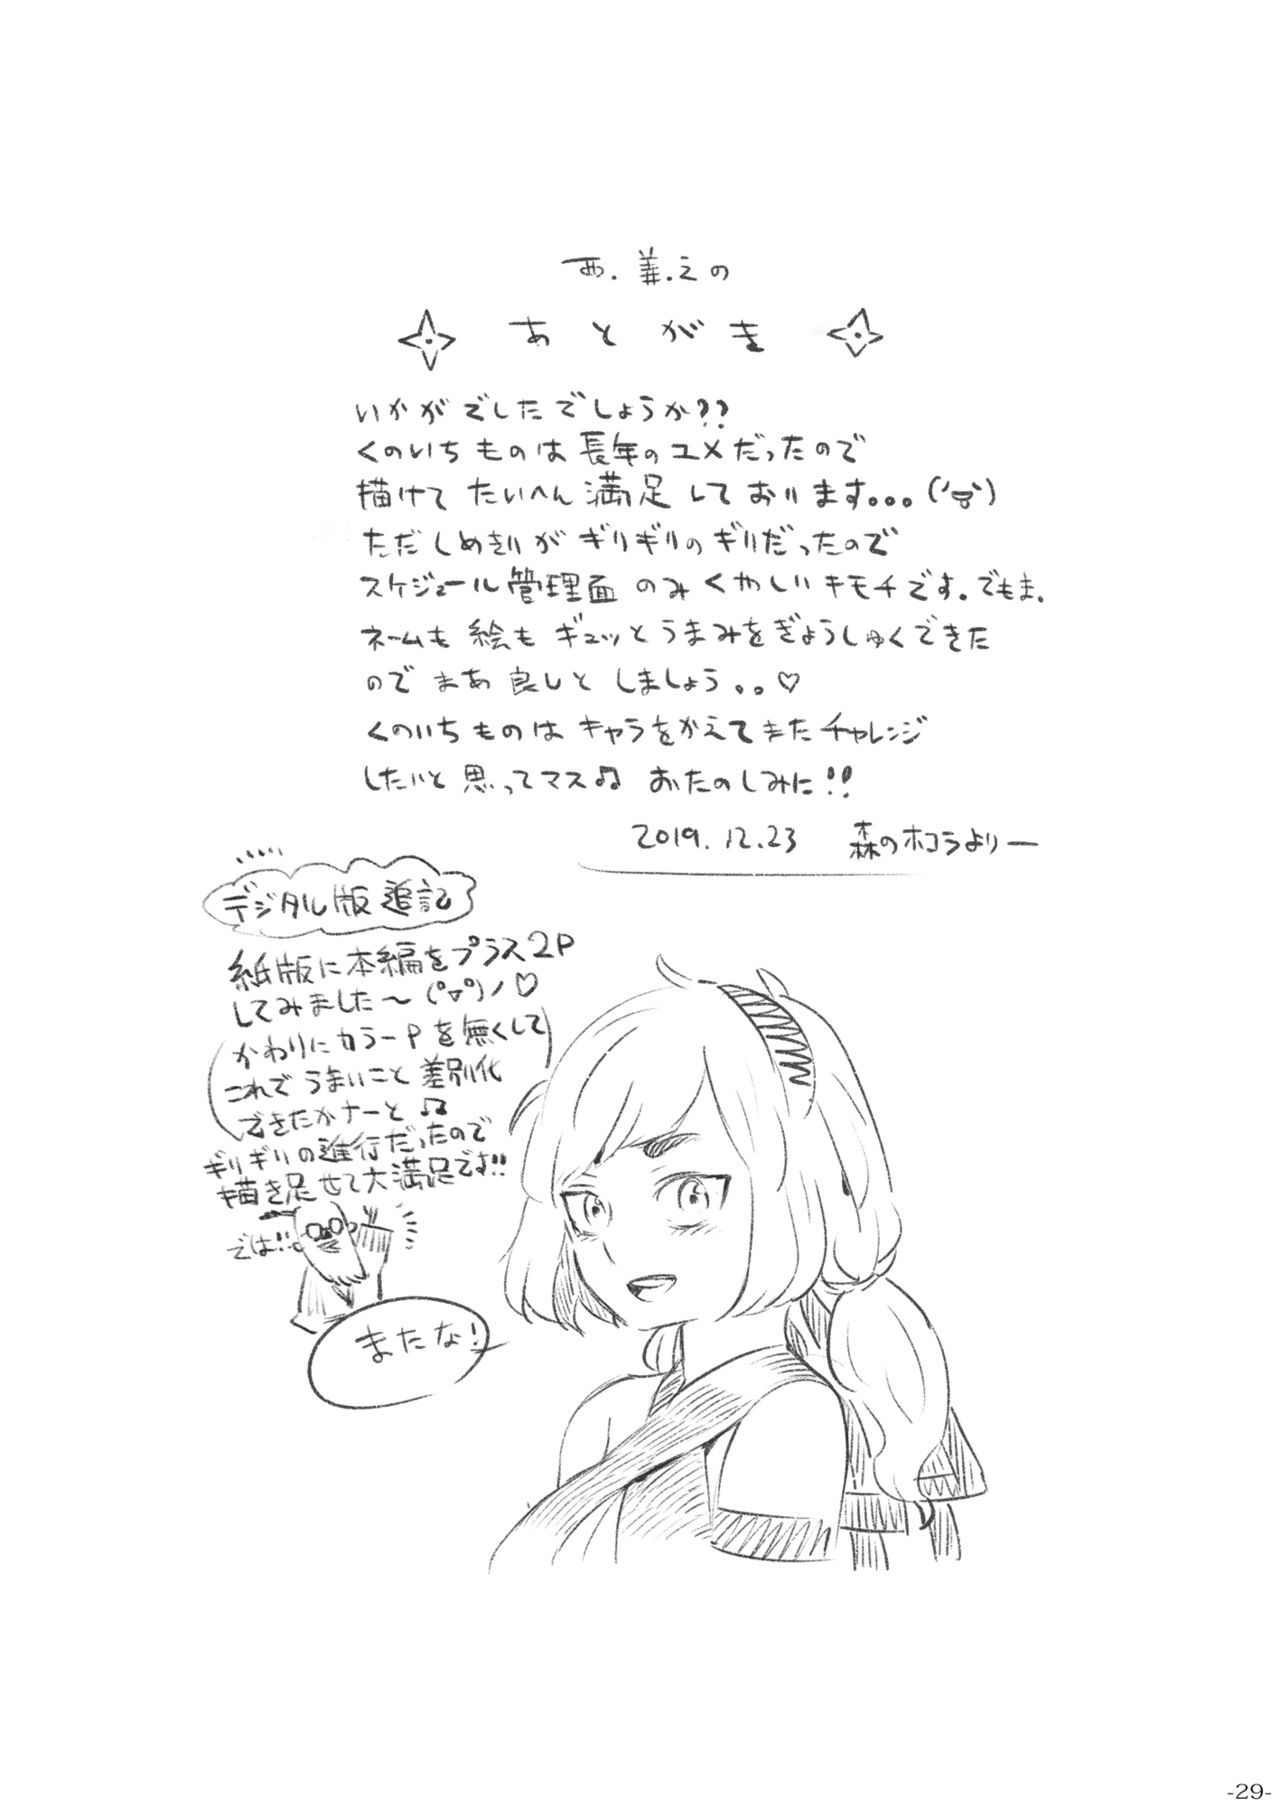 西.義.之の
あとがき
いかがでしたでしょうか??
くのいちものは長年のユメだったので
描けてたいへん満足しております。。。
ただしめきりがギリギリのギリだったので
スケジュール管理面のみくやしいキモチです。でもま.
ネームも絵もギュッとうまみをぎょうしゅくできた
のでまあ良しとしましょう。。♡
くのいちものはキャラをかえてまたチャレンジ
したいと思ってマス♫ おたのしみに!!
2019.12.23 森のホコラよりー
デジタル版追記
紙版に本編をプラス2P
してみました〜(°▽°)ノ♡
かわりにカラーPを無くして
これでうまいこと差別化
できたかナーと♫
ギリギリの進行だったので
描き足せて大満足です!!
では!!
またな!
-29-